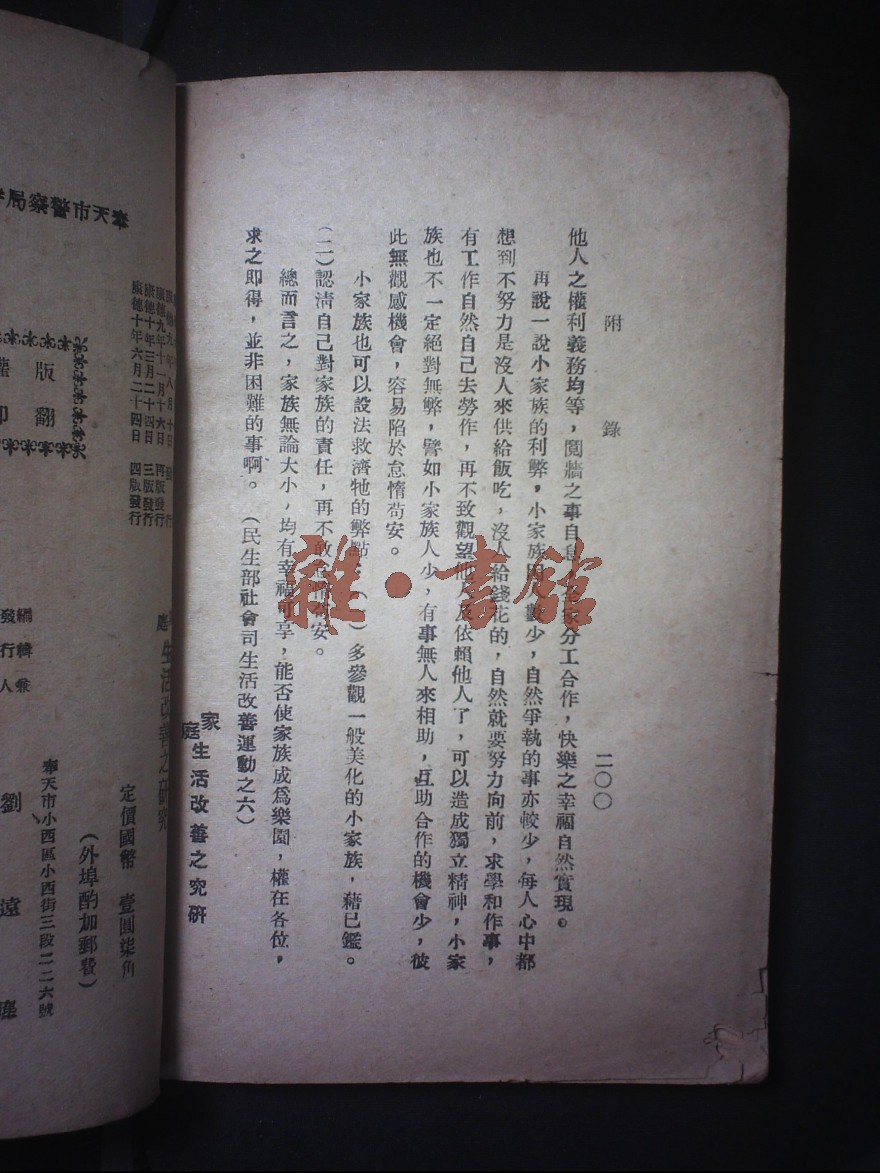 附錄 二〇〇
他人之權利義務均等，鬩牆之事自息，各家分工合作，快樂之幸福自然實現。
再說一說小家族的利弊，小家族因人數少，自然爭執的事亦較少，每人心中都
想到不努力是沒人來供給飯吃，沒人給錢花的，自然就要努力向前，求學和作事，
有工作自然自己去勞作，再不致觀望他人及依賴他人了，可以造成獨立精神，小家
族也不一定絕對無弊，譬如小家族人少，有事無人來相助，互助合作的機會少，彼
此無觀感機會，容易陷於怠惰苟安。
小家族也可以設法救濟牠的弊點：（一）多參觀一般美化的小家族，藉已鑑。
（二）認清自己對家族的責任，再不敢怠惰苟安。
總而言之，家族無論大小，均有幸福可享，能否使家族成爲樂園，權在各位，
求之即得，並非困難的事啊。（民生部社會司生活改善運動之六）
家庭生活改善之究硏
雜·書館
庭生活改善之研究
定價國幣 壹圓柒角
（外埠酌加郵費）
康德九年十一月十六日 再版發行
康德十年三月二十四日 三版發行
康德十年六月二十四日 四版發行
奉天市小西區小西街三段二二六號
版
翻
權
印
編輯兼
發行人
劉遠
奉天市警察局